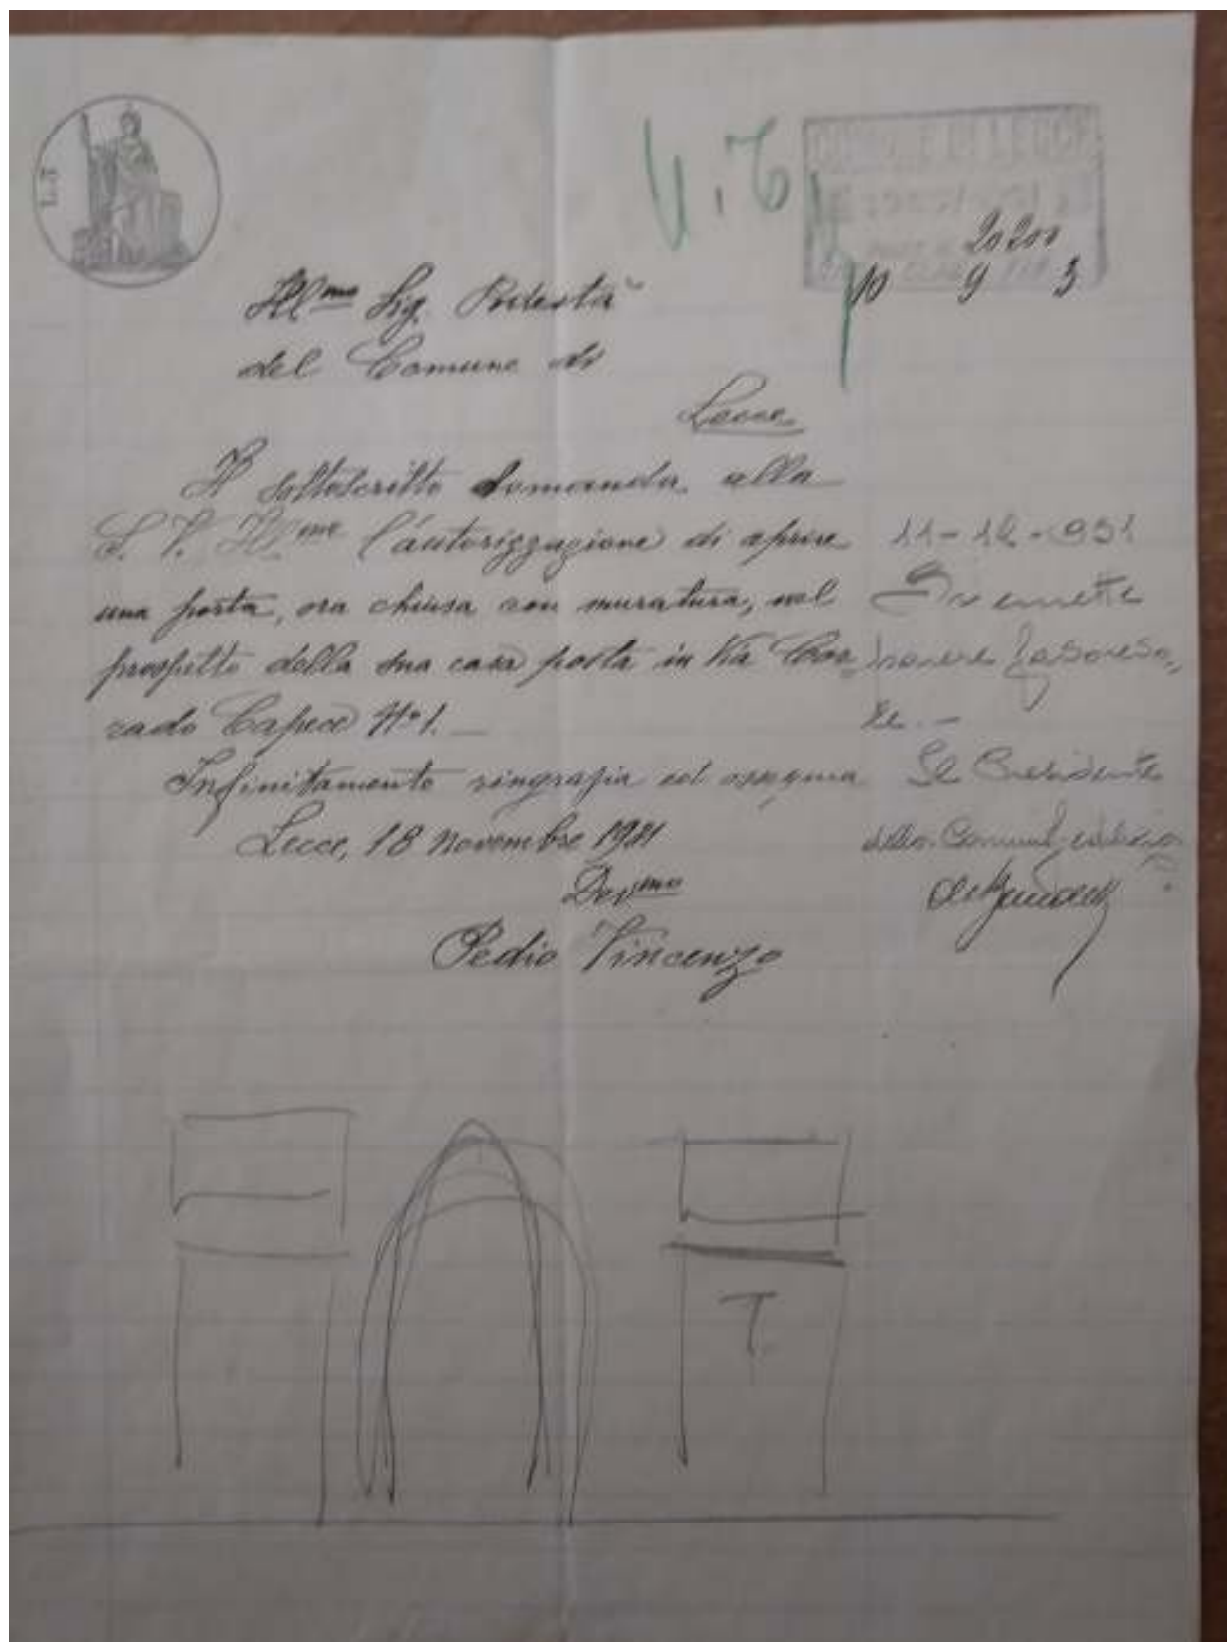 L. 3
U. T.
COMUNE DI LECCE
20200
10 9 3
Ill.mo Sig. Podestà
del Comune di
Lecce
Il sottoscritto domanda alla
S. V. Ill.me l'autorizzazione di aprire
una porta, ora chiusa con muratura, nel
prospetto della sua casa posta in Via Cor-
rado Capece N.o 1. —
Infinitamente ringrazia ed ossequia
Lecce, 18 Novembre 1931
Dev.mo
Pedio Vincenzo
11-12-931
Si emette
parere favorevo-
le. —
Il Presidente
della Commis. edilizia
T.